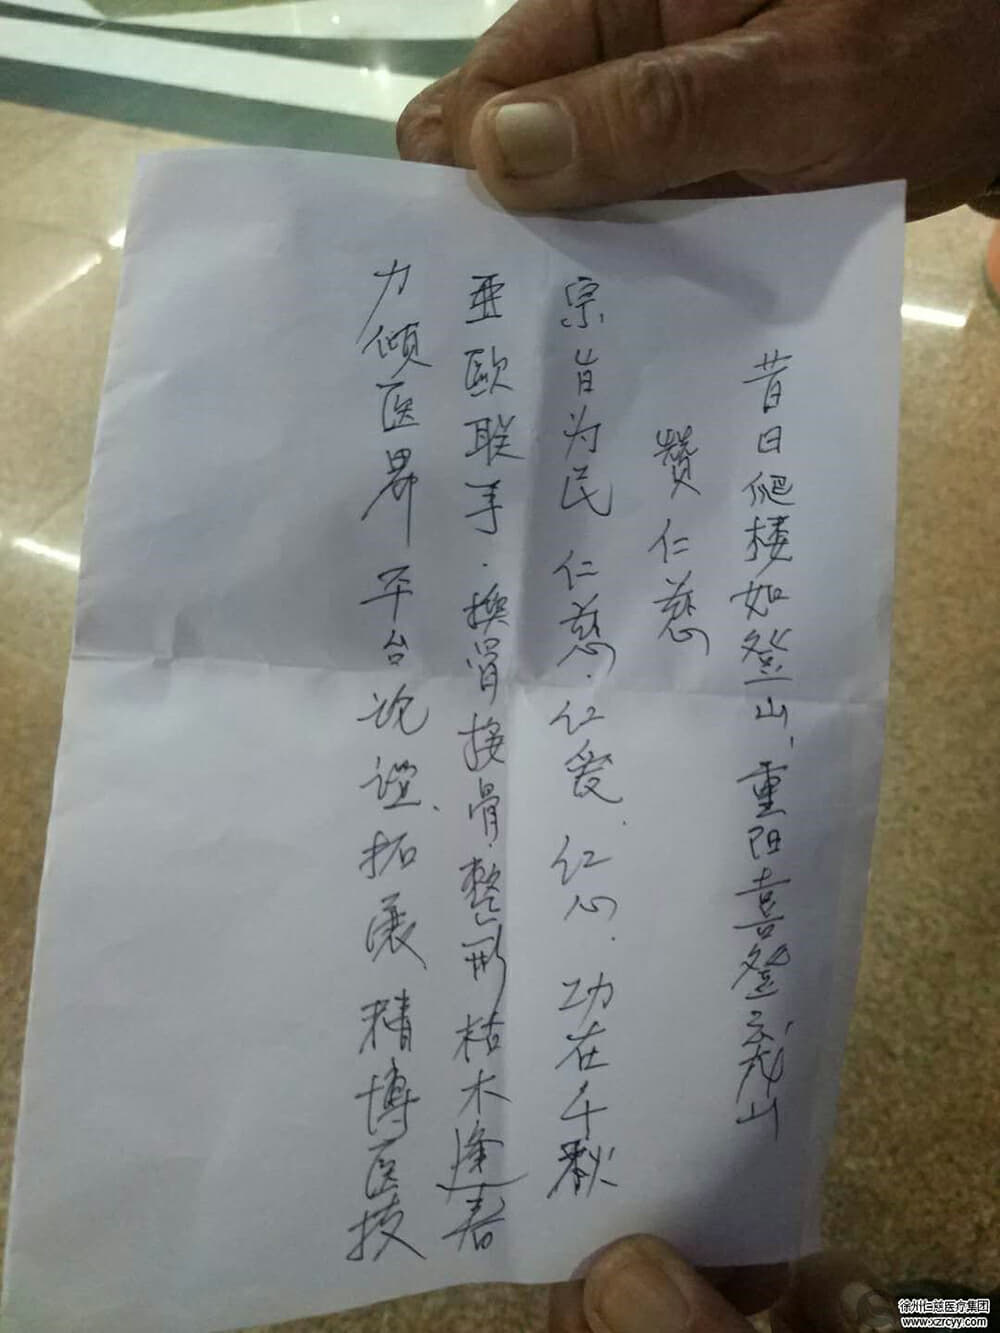 昔日爬楼如登山、重阳喜登云龙山
赞仁慈
宗旨为民 仁慈.仁爱.仁心.功在千秋
亚欧联手.换骨接骨.整形枯木逢春
力倾医界 平台论证、拓展 精博医技
徐州仁慈医疗集团
www.xzrcyy.com